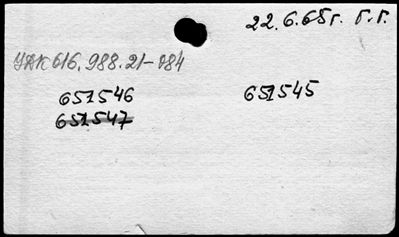 22.6.65г. Г.Г.
УДК 616.988.21-084
651546 651545
651547